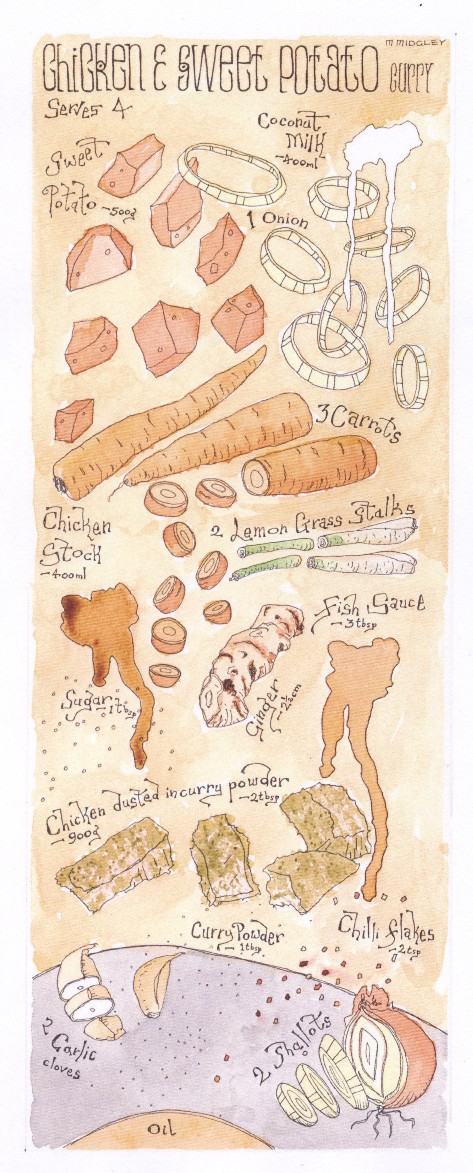 M MIDGLEY
Chicken & Sweet Potato Curry
Serves 4
Coconut
Milk
~400ml
Sweet
Potato ~500g
1 Onion
3 Carrots
2 Lemon Grass Stalks
Chicken
Stock
~400ml
Fish Sauce
~3tbsp
Sugar 1tbsp
Ginder
~2½cm
Chicken dusted in curry powder
~900g
~2tbsp
Curry Powder
~1tbsp
Chilli flakes
~2tsp
2 Garlic
cloves
2 Shallots
Oil